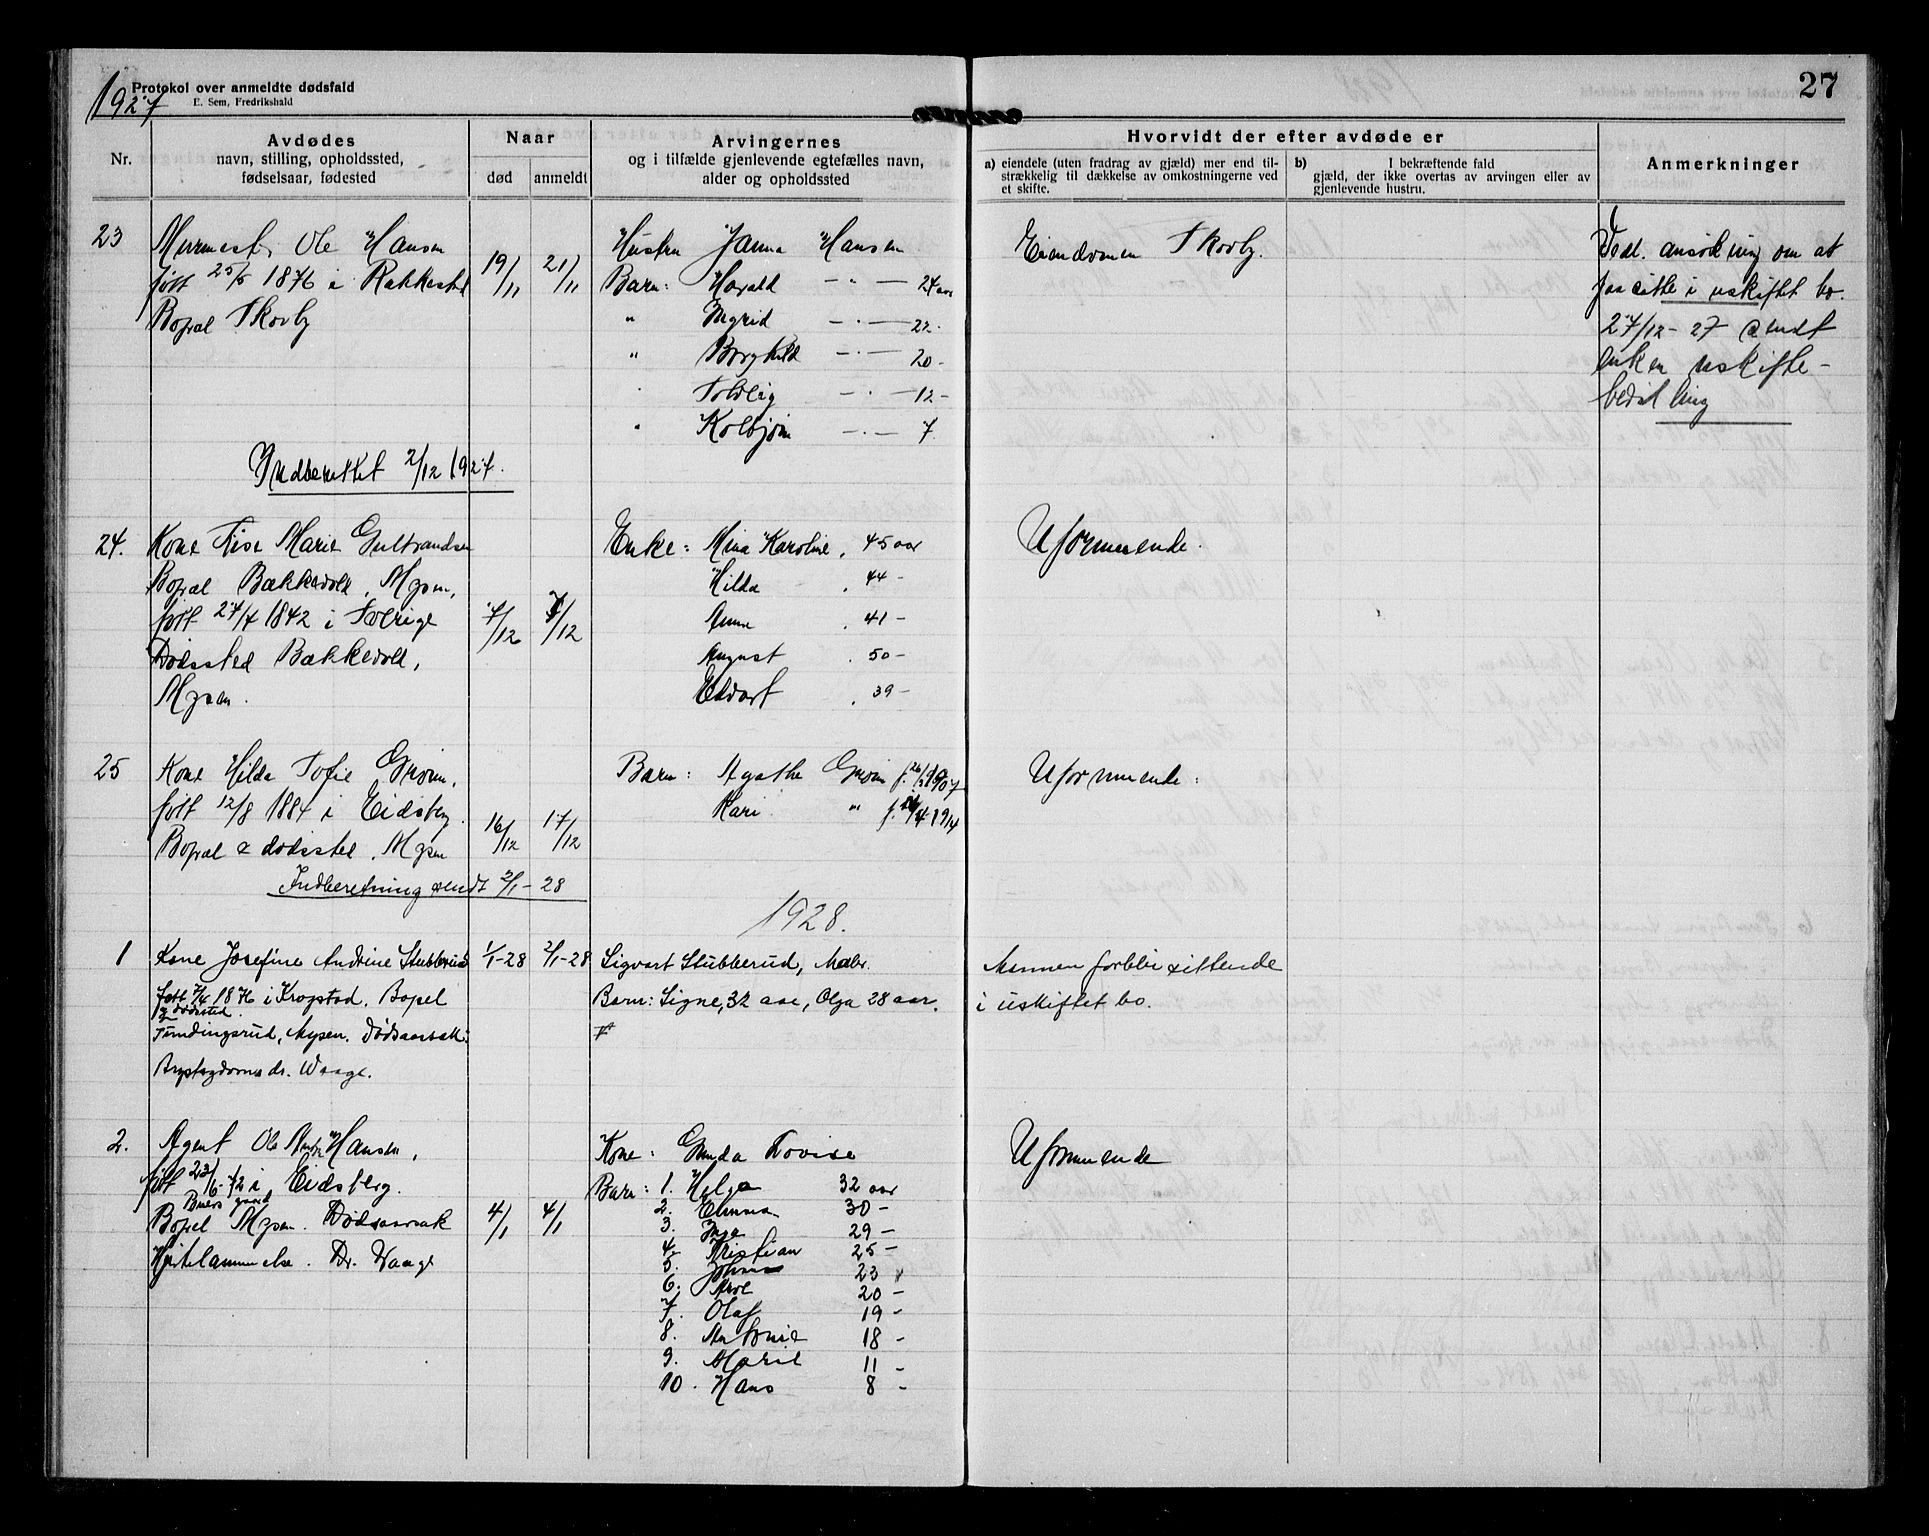 1927
Protokol over anmeldte dødsfald
E. Sem, Fredrikshald
27
Nr.
Avdødes
navn, stilling, opholdssted,
fødselsaar, fødested
Naar
død
anmeldt
Arvingernes
og i tilfælde gjenlevende egtefælles navn,
alder og opholdssted
Hvorvidt der efter avdøde er
a) eiendele (uten fradrag av gjæld) mer end til-
strækkelig til dækkelse av omkostningerne ved
et skifte.
b) I bekræftende fald
gjæld, der ikke overtas av arvingen eller av
gjenlevende hustru.
Anmerkninger
23
Murmest. Ole Hansen
født 25/5 1876 i Rakkestad
Bopæl Skovly
19/11
21/11
Hustru Janna Hansen
Barn: Harald — " — 24 aar
" Ingrid — · — 22 -
" Borghild — · — 20 -
Solveig — · — 12 -
" Kolbjørn — · — 7
Eiendomen Skovly.
Vedl. ansökning om at
faa sitte i uskiftet bo.
27/12 - 27 sendt
enken uskifte-
bevilling
Indberettet 2/12 1927.
24.
Kone Lise Marie Gulbrandsen
Bopæl Bækkevold, Mysen,
født 27/4 1842 i Sverige
Dødssted Bækkevold,
Mysen.
7/12
7/12
Enke: Mina Karoline, 45 aar
Hilda . 44 -
Anna . 41 -
August . 50 -
Edvart . 39 -
Uformuende.
25
Kone Hilda Sofie Grønn,
født 12/8 1884 i Eidsberg.
Bopæl & dødssted, Mysen
16/12
17/12
Barn: Agathe Grøn f. 26/3 1907
Kari " f. /4 1914
Uformuende:
Indberetning sendt 2/1 - 28
1928.
1
Kone Josefine Andrine Stubberud
født 7/4 1876 i Kropstad. Bopel
& dödssted.
Tundingsrud, Mysen. Dødsaarsak:
dr. Waage.
1/1-28
2/1-28
Sigvart Stubberud, Malr.
Barn: Signe, 32 aar, Olga 28 aar.
Mannen forblir sittende
i uskiftet bo.
2.
Agent Ole Hansen,
født 23/6-72 i Eidsberg.
gaard
Bopel Mysen. Dødsaarsak
Hjertelammelse. Dr. Waage
4/1
4/1
Kone: Gunda Lovise
Barn: 1. Helga 32 aar
2. Emma 30 -
3. Inga 29 -
4. Kristian 25 -
5. Johan 23
6. Arve 20 -
7. Olaf 19 -
8. Antonie 18 -
9. Marie 11 -
10. Hans 8 -
Uformuende